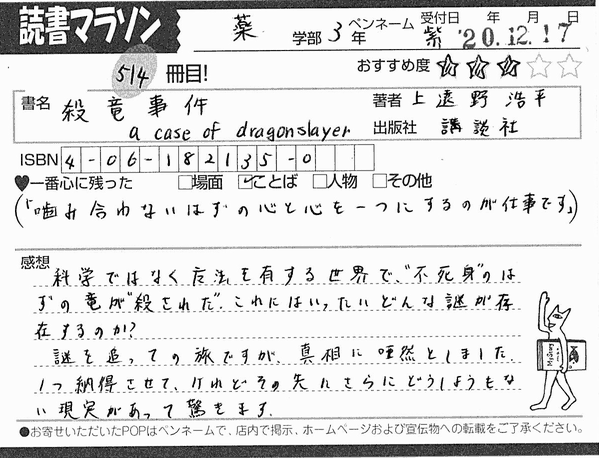 読書マラソン
薬 学部 3年 ペンネーム 紫 受付日 年 月 日 '20.12.17
514 冊目!
おすすめ度 ★★★☆☆
書名 殺竜事件 著者 上遠野浩平
a case of dragonslayer 出版社 講談社
ISBN 4-06-182135-0
♥一番心に残った □場面 ☑ことば □人物 □その他
(「噛み合わないはずの心と心を一つにするのが仕事です」)
感想
科学ではなく呪法を有する世界で、"不死身"のは
ずの竜が"殺された"。これにはいったいどんな謎が存
在するのか?
謎を追っての旅ですが、真相に唖然としました。
1つ納得させて、けれどその先にさらにどうしようもな
い現実があって驚きます。
●お寄せいただいたPOPはペンネームで、店内で掲示、ホームページおよび宣伝物への転載をご了承ください。